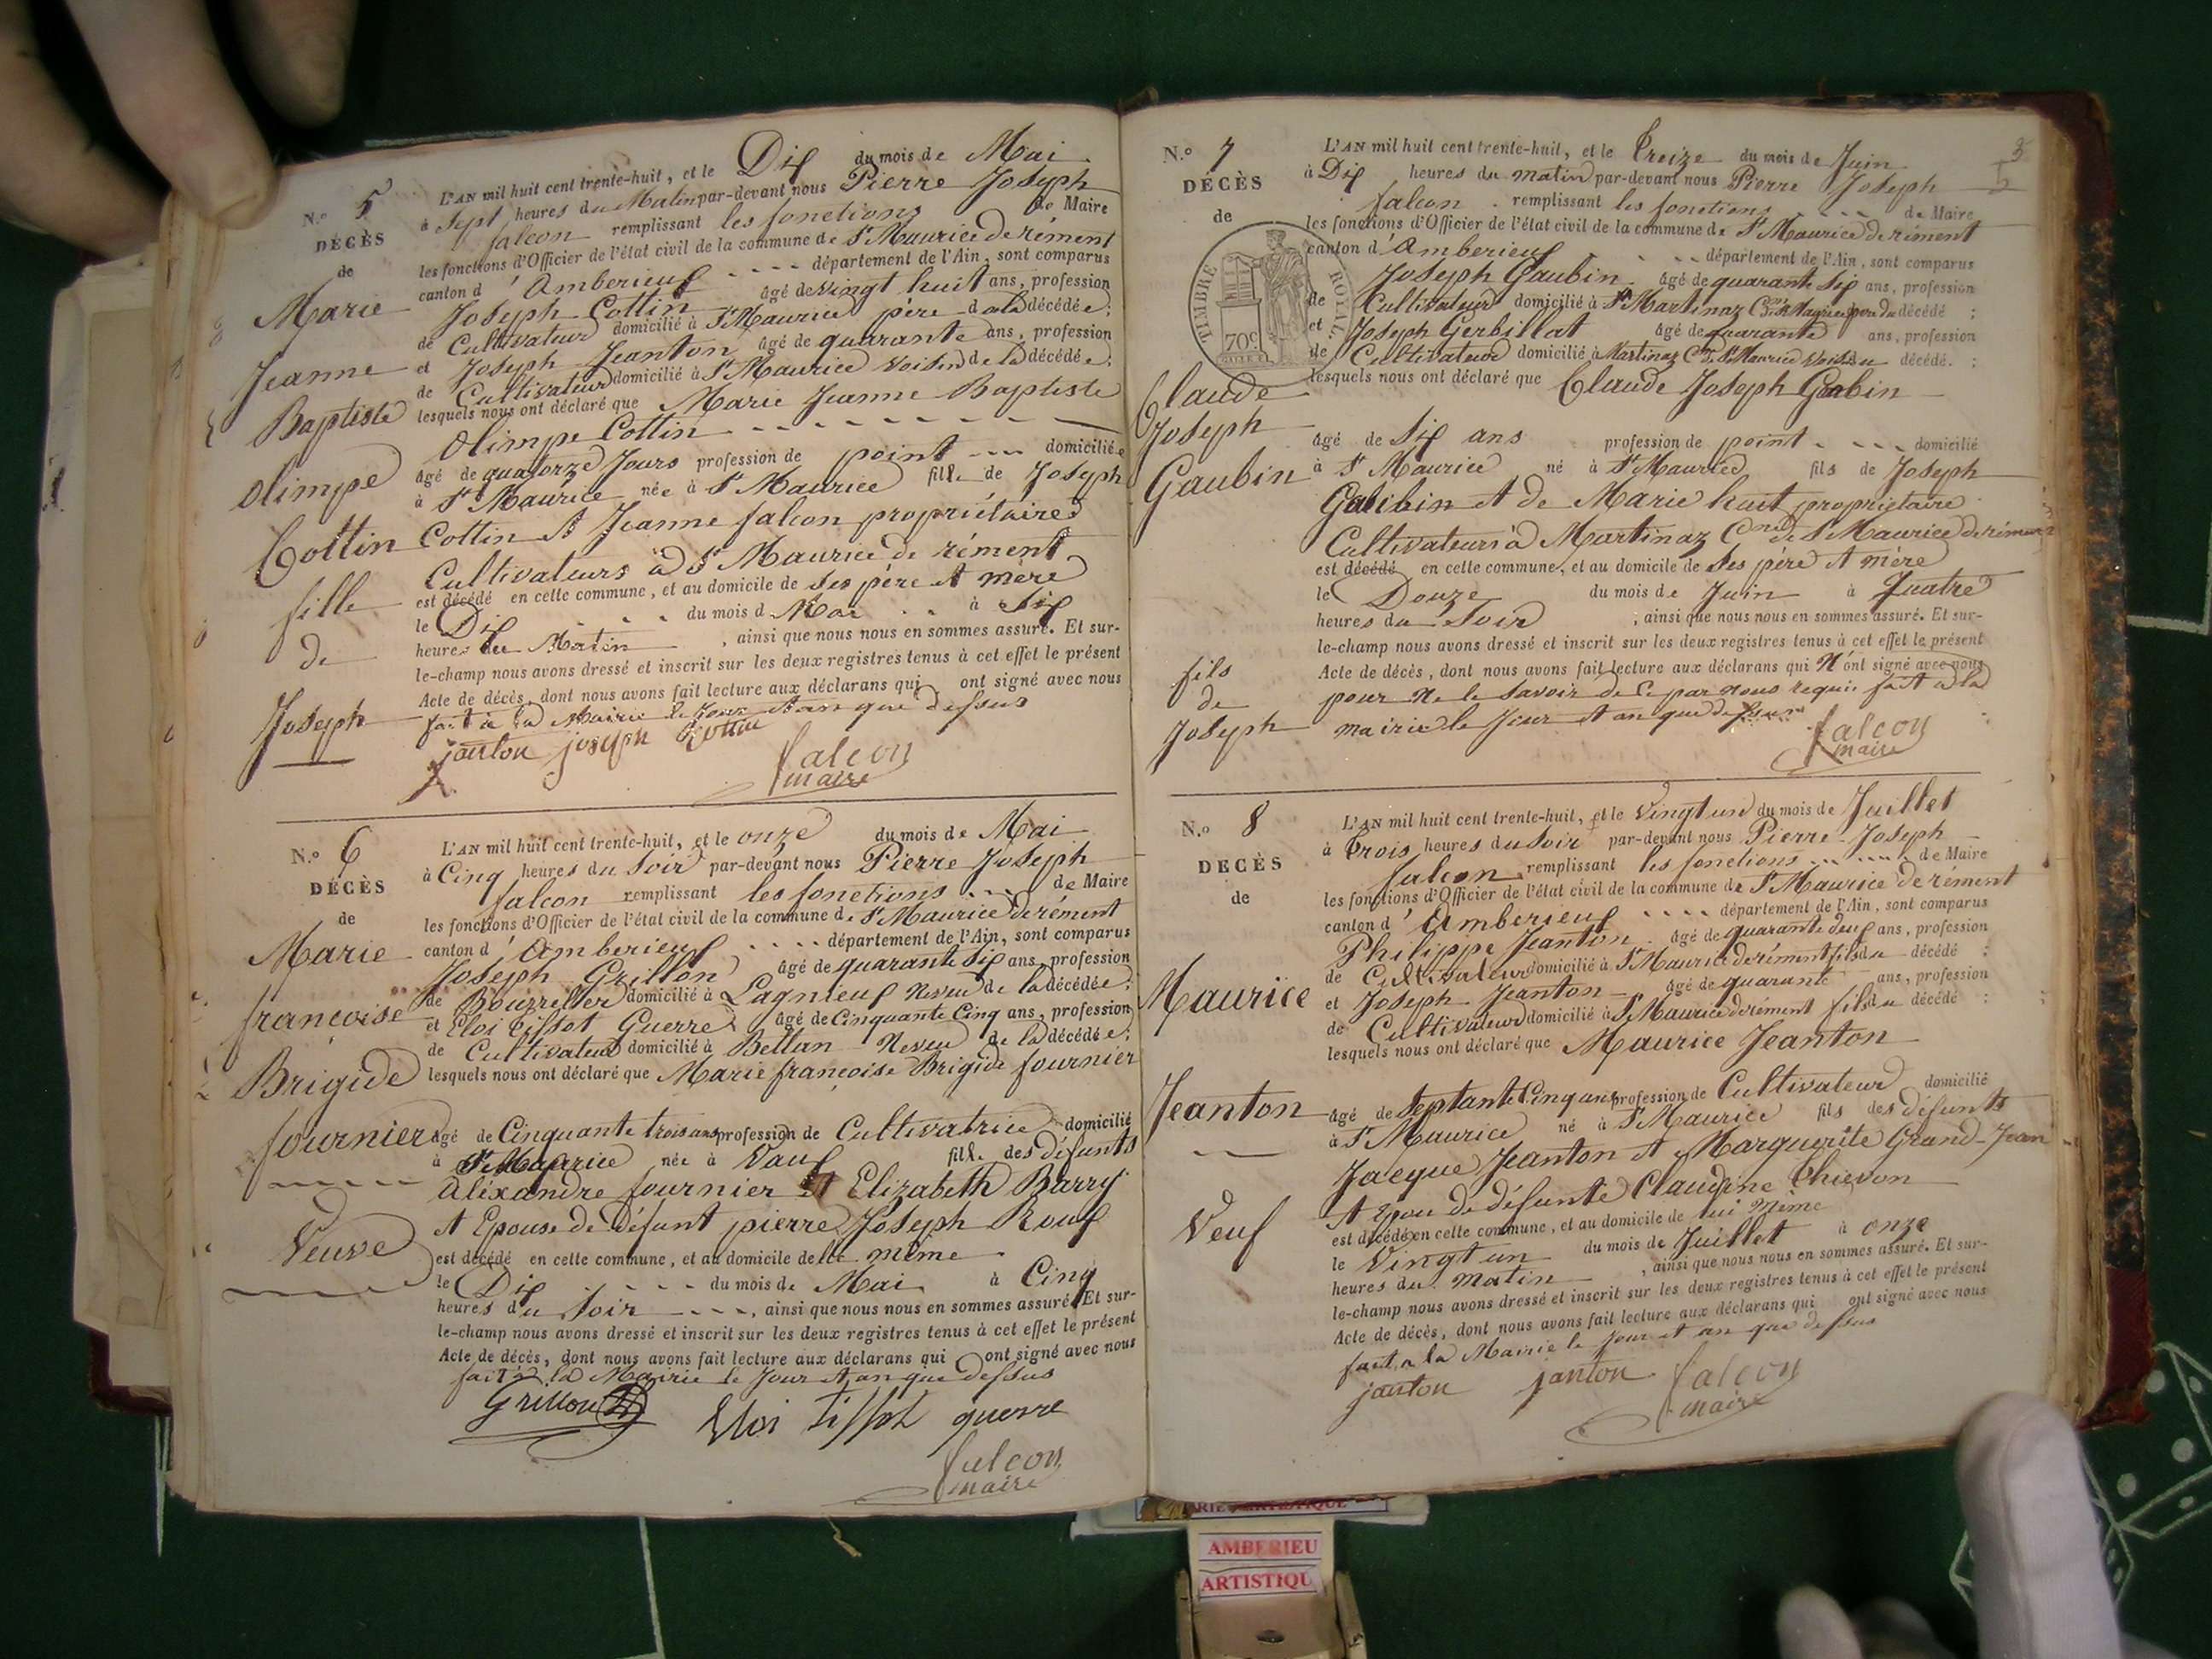 N.º 5
DÉCÈS
de
Marie
Jeanne
Baptiste
Olimpe
Cottin
fille
de
Joseph
L'AN mil huit cent trente-huit, et le Dix du mois de Mai
à Sept heures du Matin par-devant nous Pierre Joseph
falcon remplissant les fonctions de Maire
les fonctions d'Officier de l'état civil de la commune de St Maurice de rément
canton d'Amberieux département de l'Ain, sont comparus
Joseph Cottin âgé de vingt huit ans, profession
de Cultivateur domicilié à St Maurice père de la décédée;
et Joseph Jeanton âgé de quarante ans, profession
de Cultivateur domicilié à St Maurice voisin de la décédée;
lesquels nous ont déclaré que Marie Jeanne Baptiste
Olimpe Cottin
âgé de quatorze Jours profession de point domiciliée
à St Maurice née à St Maurice fille de Joseph
Cottin et Jeanne falcon propriétaires
Cultivateurs à St Maurice de rément
est décédé en cette commune, et au domicile de ses père et mère
le Dix du mois d Mai à Six
heures du Matin, ainsi que nous nous en sommes assuré. Et sur-
le-champ nous avons dressé et inscrit sur les deux registres tenus à cet effet le présent
Acte de décès, dont nous avons fait lecture aux déclarans qui ont signé avec nous
fait à la Mairie le Jour et an que dessus
janton joseph Cottin
falcon
maire
N.º 6
DÉCÈS
de
Marie
françoise
Brigide
fournier
Veuve
L'AN mil huit cent trente-huit, et le onze du mois de Mai
à Cinq heures du Soir par-devant nous Pierre Joseph
falcon remplissant les fonctions de Maire
les fonctions d'Officier de l'état civil de la commune de St Maurice de rément
canton d'Amberieux département de l'Ain, sont comparus
Joseph Grillon âgé de quarante Six ans, profession
de Bourrelier domicilié à Lagnieux Neveu de la décédée;
et Eloi Tissot Guerre âgé de Cinquante Cinq ans, profession
de Cultivateur domicilié à Bettan Neveu de la décédée;
lesquels nous ont déclaré que Marie françoise Brigide fournier
âgé de Cinquante trois ans profession de Cultivatrice domicilié
à St Maurice née à Vaux fille des défunts
Aléxandre fournier et Elizabeth Barry
et Epouse de Défunt pierre Joseph Roux
est décédé en cette commune, et au domicile de lle même
le Dix du mois de Mai à Cinq
heures du Soir, ainsi que nous nous en sommes assuré. Et sur-
le-champ nous avons dressé et inscrit sur les deux registres tenus à cet effet le présent
Acte de décès, dont nous avons fait lecture aux déclarans qui ont signé avec nous
fait à la Mairie le Jour et an que dessus
Grillon
Eloi tissot guerre
falcon
maire
N.º 7
DÉCÈS
de
TIMBRE ROYAL
70 c
Claude
Joseph
Gaubin
fils
de
Joseph
L'AN mil huit cent trente-huit, et le Treize du mois de Juin
à Dix heures du matin par-devant nous Pierre Joseph
falcon remplissant les fonctions de Maire
les fonctions d'Officier de l'état civil de la commune de St Maurice de rément
canton d'Amberieux département de l'Ain, sont comparus
Joseph Gaubin âgé de quarante Six ans, profession
de Cultivateur domicilié à St Martinaz père du décédé;
et Joseph Gerbillat âgé de quarante ans, profession
de Cultivateur domicilié à Martinaz Cne de St Maurice voisin décédé.
lesquels nous ont déclaré que Claude Joseph Gaubin
âgé de Six ans profession de point domicilié
à St Maurice né à St Maurice fils de Joseph
Gaubin et de Marie huit propriétaire
Cultivateurs à Martinaz Cne de St Maurice de rément
est décédé en cette commune, et au domicile de ses père et mère
le Douze du mois de Juin à Quatre
heures du Soir; ainsi que nous nous en sommes assuré. Et sur-
le-champ nous avons dressé et inscrit sur les deux registres tenus à cet effet le présent
Acte de décès, dont nous avons fait lecture aux déclarans qui N'ont signé avec nous
pour Ne le Savoir de Ce par Nous requis fait à la
mairie le Jour et an que dessus
falcon
maire
N.º 8
DÉCÈS
de
Maurice
Jeanton
Veuf
L'AN mil huit cent trente-huit, et le Vingt un du mois de Juillet
à Trois heures du soir par-devant nous Pierre Joseph
falcon remplissant les fonctions de Maire
les fonctions d'Officier de l'état civil de la commune de St Maurice de rément
canton d'Amberieux département de l'Ain, sont comparus
Philippe Jeanton âgé de quarante deux ans, profession
de Cultivateur domicilié à St Maurice de rément fils du décédé;
et Joseph Jeanton âgé de quarante ans, profession
de Cultivateur domicilié à St Maurice de rément fils du décédé;
lesquels nous ont déclaré que Maurice Jeanton
âgé de Septante Cinq ans profession de Cultivateur domicilié
à St Maurice né à St Maurice fils des défunts
Jacque Jeanton et Marguerite Grand-Jean
et Epou de défunte Claudine Thievon
est décédé en cette commune, et au domicile de lui même
le Vingt un du mois de Juillet à onze
heures du matin, ainsi que nous nous en sommes assuré. Et sur-
le-champ nous avons dressé et inscrit sur les deux registres tenus à cet effet le présent
Acte de décès, dont nous avons fait lecture aux déclarans qui ont signé avec nous
fait à la Mairie le Jour et an que dessus
janton janton falcon
maire
AMBERIEU
ARTISTIQU